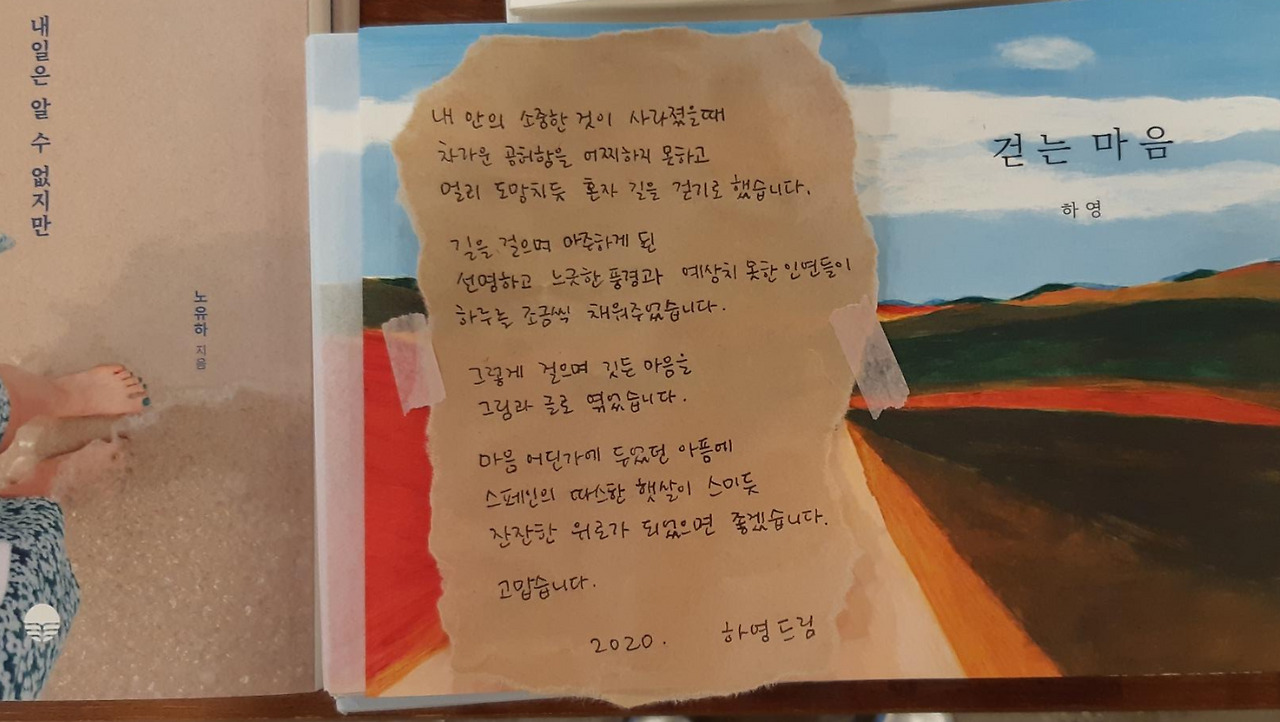 내일은 알 수 없지만
노유하 지음
내 안의 소중한 것이 사라졌을때
차가운 공허함을 어찌하지 못하고
멀리 도망치듯 혼자 길을 걷기로 했습니다.
길을 걸으며 마주하게 된
선명하고 느긋한 풍경과 예상치 못한 인연들이
하루를 조금씩 채워주었습니다.
그렇게 걸으며 깃든 마음을
그림과 글로 엮었습니다.
마음 어딘가에 두었던 아픔에
스페인의 따스한 햇살이 스미듯
잔잔한 위로가 되었으면 좋겠습니다.
고맙습니다.
2020. 하영드림
걷는 마음
하영